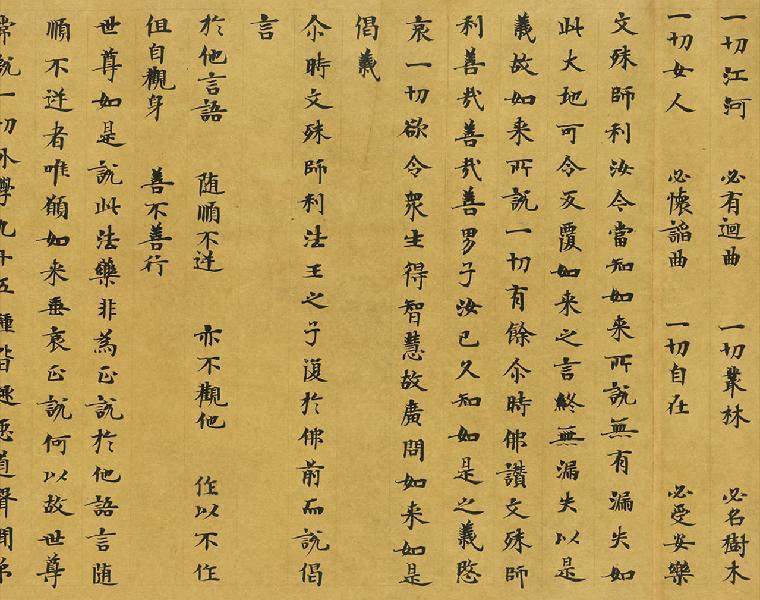 一切江河 必有迴曲 一切叢林 必名樹木
一切女人 必懷諂曲 一切自在 必受安樂
文殊師利汝今當知如來所說無有漏失如
此大地可令反覆如来之言終無漏失以是
義故如来所說一切有餘尒時佛讚文殊師
利善哉善哉善男子汝已久知如是之義愍
哀一切欲令衆生得智慧故廣問如来如是
偈義
尒時文殊師利法王之子復於佛前而說偈
言
於他言語 随順不逆 亦不觀他 作以不作
但自觀身 善不善行
世尊如是說此法藥非為正說於他語言随
順不逆者唯願如来垂哀正說何以故世尊
常說一切外學九十五種皆趣惡道聲聞弟